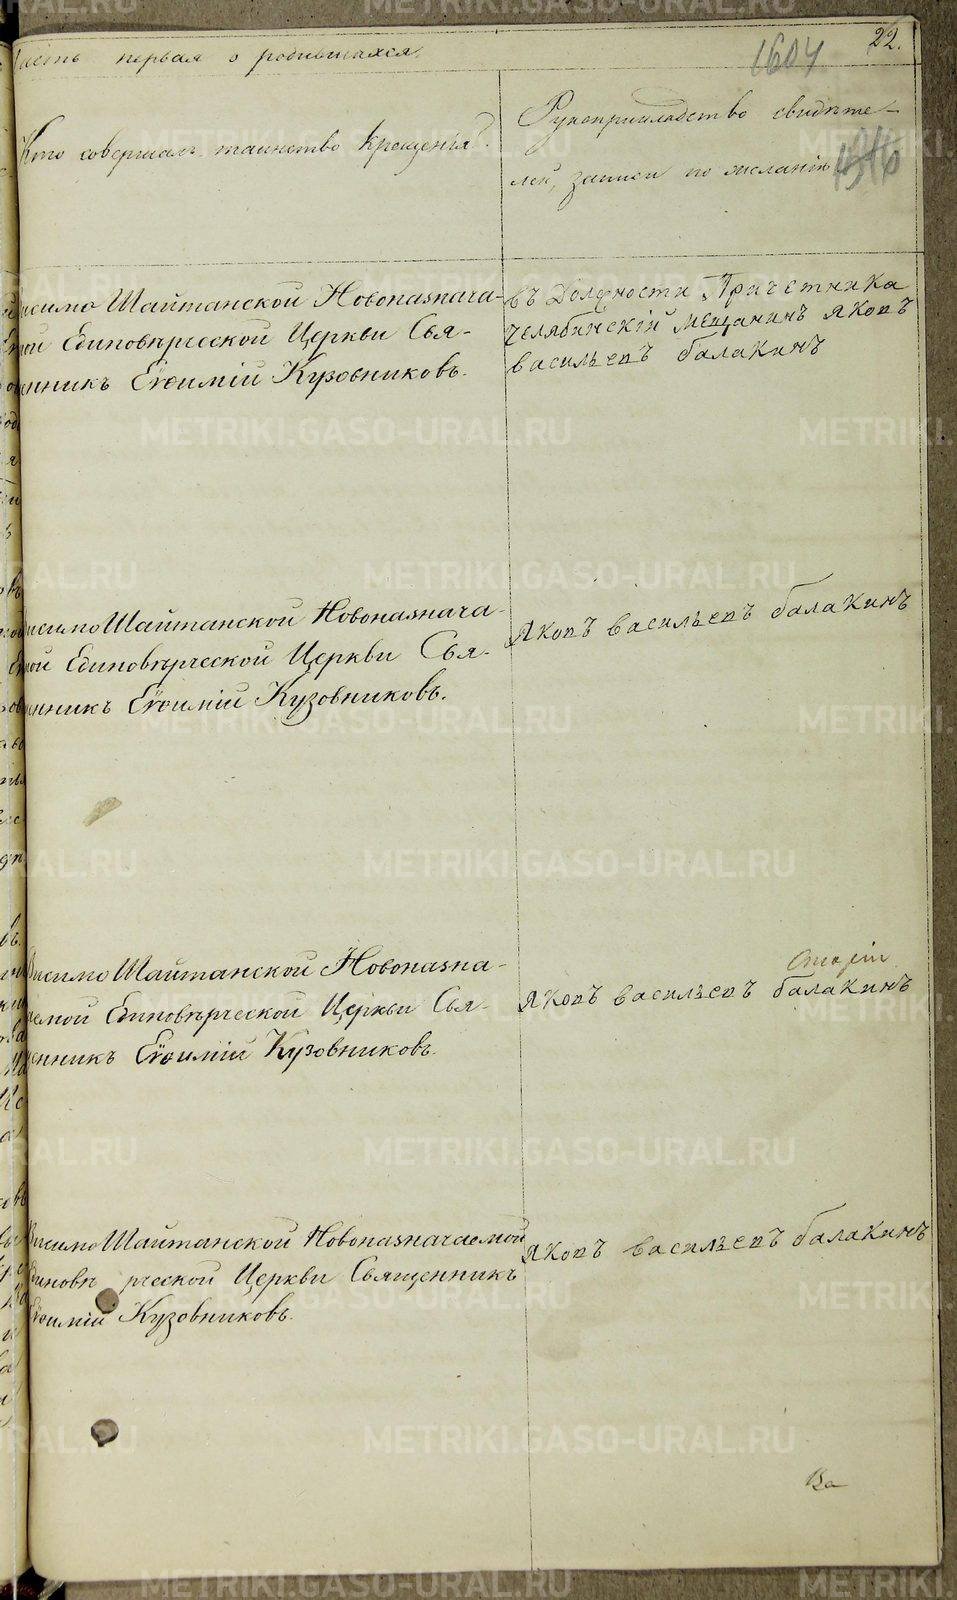 Часть первая о родившихся.
1604
22.
Кто совершалъ таинство крещенія?
Рукоприкладство свидѣте-
лей, записи по желанію
исимо Шайтанской Новоназнача-
мой Единовѣрческой Церкви Свя-
щенникъ Евѳимій Кузовниковъ.
въ Должности Причетника
челябинскій мещанинъ яковъ
васильевъ балакинъ
исимо Шайтанской Новоназнача-
мой Единовѣрческой Церкви Свя-
щенникъ Евѳимій Кузовниковъ.
яковъ васильевъ балакинъ
Висимо Шайтанской Новоназна-
чаемой Единовѣрческой Церкви Свя-
щенникъ Евѳимій Кузовниковъ.
яковъ васильевъ балакинъ
Висимо Шайтанской Новоназначаемой
Единовѣрческой Церкви Священникъ
Евѳимій Кузовниковъ.
яковъ васильевъ балакинъ
Ва
METRIKI.GASO-URAL.RU